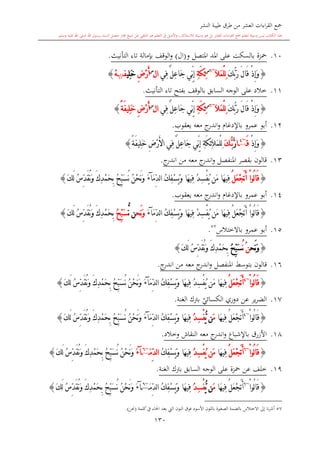 جمع القراءات العشر من طرق طيبة النشر
١٠. حمزة بالسكت على المد المتصل و(ال) والوقف بإمالة تاء التأنيث.
﴿ وَإِذْ قَالَ رَبُّكَ لِلْمَلَٰٓئِكَةِ إِنِّي جَاعِلٌ فِي ٱلْأَرْضِ خَلِيفَةً ﴾
١١. خلاد على الوجه السابق بالوقف بفتح تاء التأنيث.
﴿ وَإِذْ قَالَ رَبُّكَ لِلْمَلَٰٓئِكَةِ إِنِّي جَاعِلٌ فِي ٱلْأَرْضِ خَلِيفَةً ﴾
١٢. أبو عمرو بالإدغام واندرج معه يعقوب.
﴿ وَإِذْ قَالَ رَّبُّكَ لِلْمَلَٰٓئِكَةِ إِنِّي جَاعِلٌ فِي ٱلْأَرْضِ خَلِيفَةً ﴾
١٣. قالون بقصر المنفصل واندرج معه من اندرج.
﴿ قَالُوٓا۟ أَتَجْعَلُ فِيهَا مَن يُفْسِدُ فِيهَا وَيَسْفِكُ ٱلدِّمَآءَ وَنَحْنُ نُسَبِّحُ بِحَمْدِكَ وَنُقَدِّسُ لَكَ ﴾
١٤. أبو عمرو بالإدغام واندرج معه يعقوب.
﴿ قَالُوٓا۟ أَتَجْعَلُ فِيهَا مَن يُفْسِدُ فِيهَا وَيَسْفِكُ ٱلدِّمَآءَ وَنَحْن نُّسَبِّحُ بِحَمْدِكَ وَنُقَدِّسُ لَكَ ﴾
١٥. أبو عمرو بالاختلاس
﴿ وَنَحْنُ نُسَبِّحُ بِحَمْدِكَ وَنُقَدِّسُ لَكَ ﴾
١٦. قالون بتوسط المنفصل واندرج معه من اندرج.
﴿ قَالُوٓا۟ أَتَجْعَلُ فِيهَا مَن يُفْسِدُ فِيهَا وَيَسْفِكُ ٱلدِّمَآءَ وَنَحْنُ نُسَبِّحُ بِحَمْدِكَ وَنُقَدِّسُ لَكَ ﴾
١٧. الضرير عن دوري الكسائي بترك الغنة.
﴿ قَالُوٓا۟ أَتَجْعَلُ فِيهَا مَن يُفْسِدُ فِيهَا وَيَسْفِكُ ٱلدِّمَآءَ وَنَحْنُ نُسَبِّحُ بِحَمْدِكَ وَنُقَدِّسُ لَكَ ﴾
١٨. الأزرق بالإشباع واندرج معه النقاش وخلاد.
﴿ قَالُوٓا۟ أَتَجْعَلُ فِيهَا مَن يُفْسِدُ فِيهَا وَيَسْفِكُ ٱلدِّمَآءَ وَنَحْنُ نُسَبِّحُ بِحَمْدِكَ وَنُقَدِّسُ لَكَ ﴾
١٩. خلف عن حمزة على الوجه السابق بترك الغنة.
﴿ قَالُوٓا۟ أَتَجْعَلُ فِيهَا مَن يُفْسِدُ فِيهَا وَيَسْفِكُ ٱلدِّمَآءَ وَنَحْنُ نُسَبِّحُ بِحَمْدِكَ وَنُقَدِّسُ لَكَ ﴾
أشرنا إلى الاختلاس بالضمة الصغيرة باللون الأسود فوق النون التي بعد الحاء في كلمة (نحن).
١٣٠